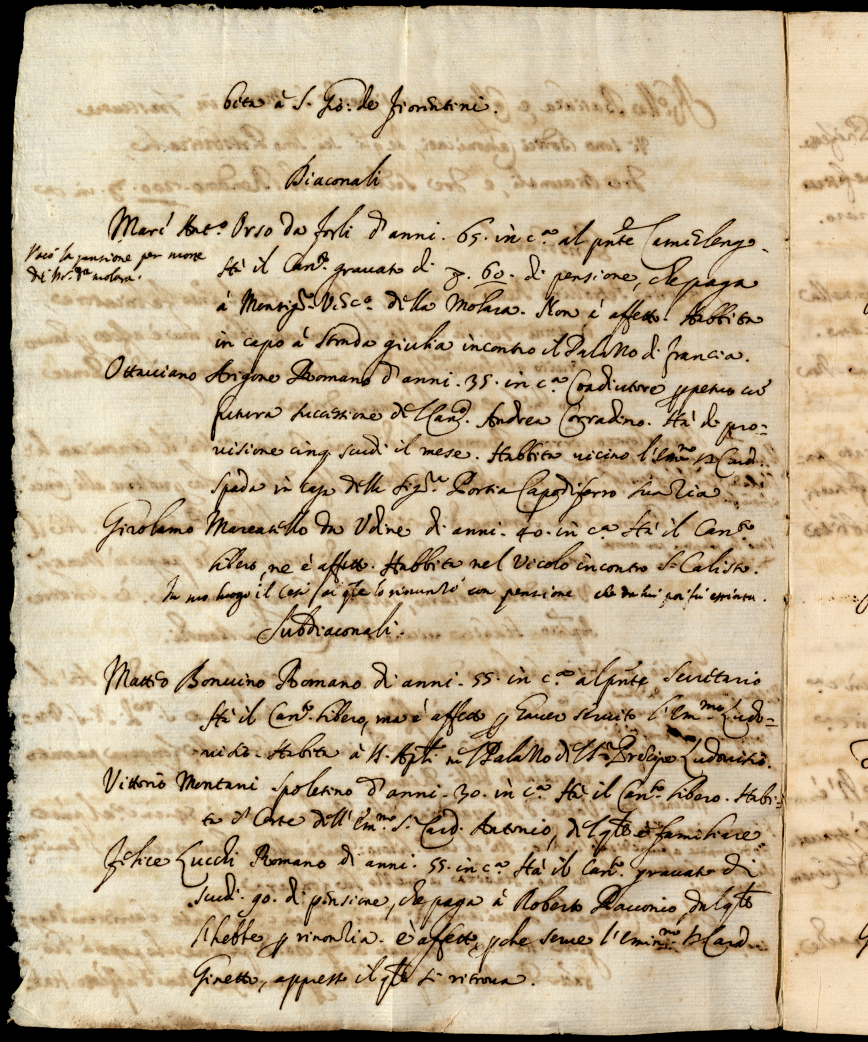 bita à S. Gio: de Fiorentini.
Diaconali
Marc' Ant.o Orso da Forlì d'anni. 65. in c.a al pnte Camerlengo.
Vacò la pensione per morte
di Mr. della molara.
Hà il Can.to gravato di ∇. 60. di pensione, che paga
à Monsig.r Vesc.o della Molara. Non è affetto. Habbita
in capo à Strada giulia incontro il Palazzo di francia.
Ottaviano Arigone Romano d'anni. 35. in c.a Coadiutore ppetuo cū
futura successione del Can.co Andrea Corradino. Hà di pro-
visione cinq. scudi il mese. Habbita vicino l'Em.mo Sr Card.
Spada in casa della Sig.ra Portia Capodiferro
Girolamo Marcatello da Udine di anni. 40. in c.a Hà il Can.to
libero, ne è affetto. Habbita nel Vicolo incontro S. Calisto.
In suo luogo il Cesi qle lo rinuntiò con pensione che da lui poi fù estinta.
Subdiaconali.
Matteo Boncino Romano di anni. 55. in c.a al pnte Secretario
Hà il Can.to libero, ma è affetto p haver servito l'Em.mo Ludo-
visio. Habita à SS. Apli nel Palazzo del Sr Prencipe Ludovisio.
Vittorio Montani Spoletino d'anni. 30. in c.a Hà il Can.to libero. Habi-
ta in Corte dell'Em.mo Sr. Card. Antonio, del qle è familiare.
Felice Lucci Romano di anni. 55. in c.a Hà il Can.to gravato di
scudi. 90. di pensione, che paga à Roberto Raconio, dal qle
l'hebbe p rinontia. è affetto, pche serve l'Emin.mo Sr Card.
Ginetti, appresso il qle si ritrova.